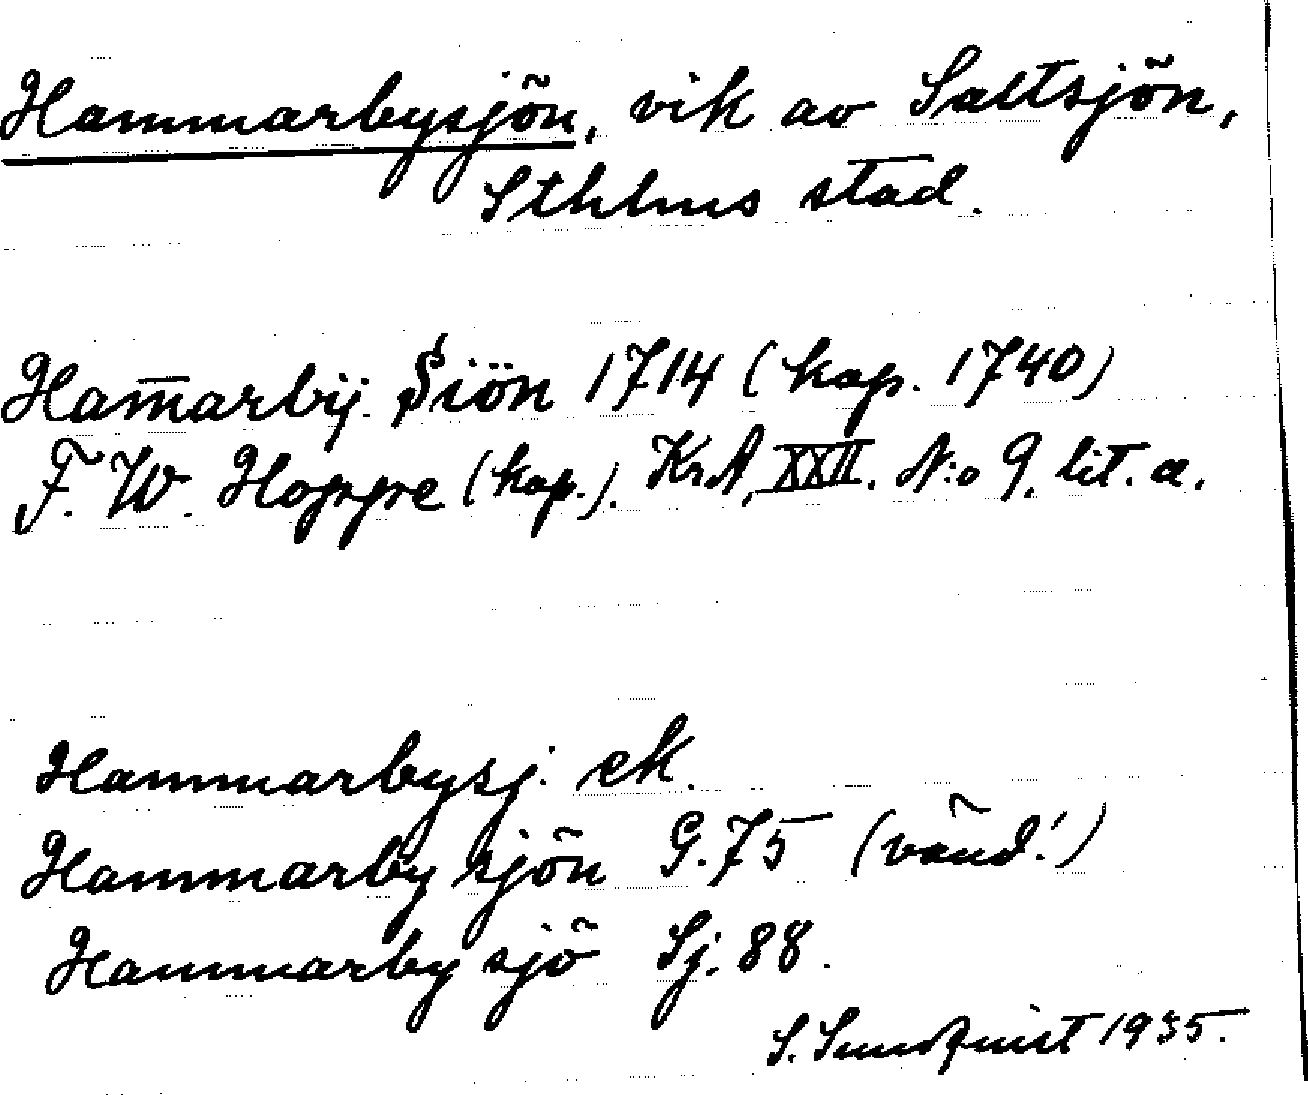 Hammarbysjön, vik av Saltsjön,
Sthlms stad.
Ham̅arbÿ Siön 1714 (kop. 1740)
F. W. Hoppe (kop.). KrA, XXII. N:o 9. lit. a.
Hammarbysj. ek.
Hammarby sjön G. 75 (vänd!)
Hammarby sjö Sj. 88.
S. Sundquist 1935.